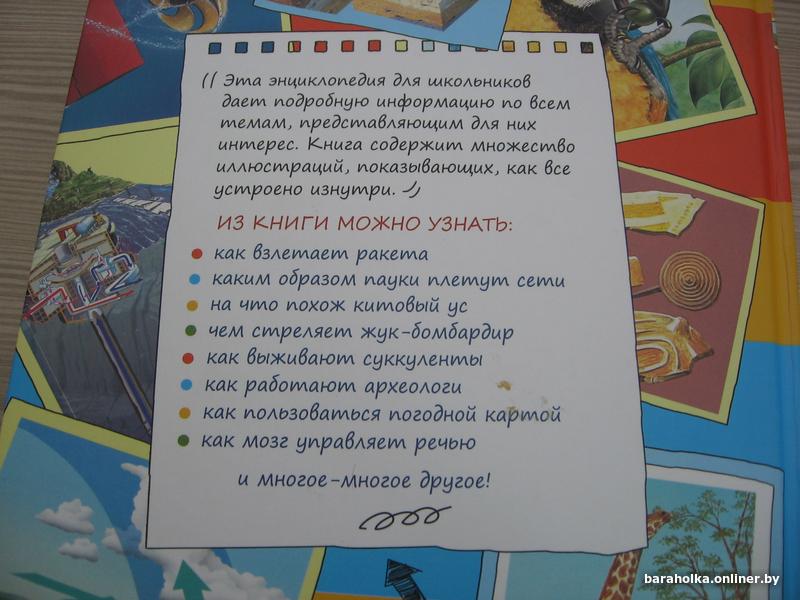 Эта энциклопедия для школьников
дает подробную информацию по всем
темам, представляющим для них
интерес. Книга содержит множество
иллюстраций, показывающих, как все
устроено изнутри.
ИЗ КНИГИ МОЖНО УЗНАТЬ:
• как взлетает ракета
• каким образом пауки плетут сети
• на что похож китовый ус
• чем стреляет жук-бомбардир
• как выживают суккуленты
• как работают археологи
• как пользоваться погодной картой
• как мозг управляет речью
и многое-многое другое!
baraholka.onliner.by